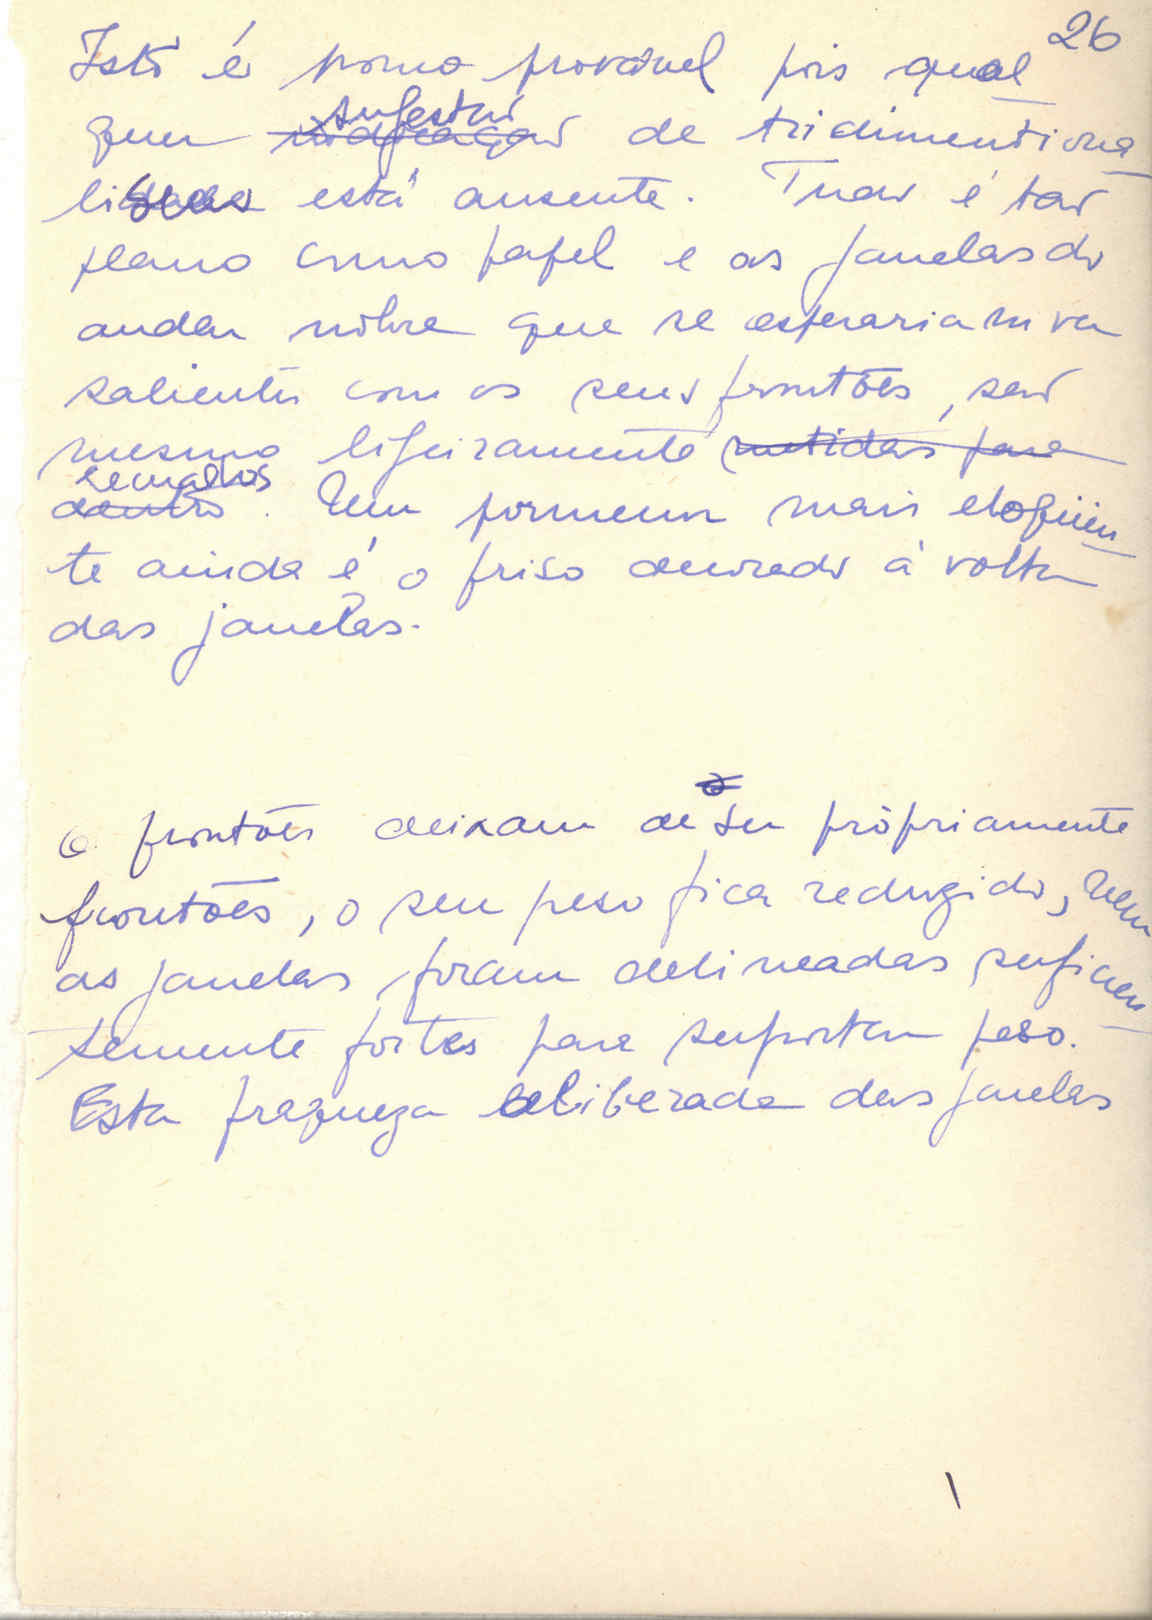 26
Isto é pouco provável pois qual
sugestão
quer indicação de tridimensiona
lidade está ausente. Tudo é tão
plano como papel e as janelas do
andar nobre que se esperariam ver
salientes com os seus frontões, são
mesmo ligeiramente metidas para
recuadas
dentro. Um pormenor mais eloqüen
te ainda é o friso dourado à volta
das janelas.
o
O frontões deixam de ser pròpriamente
frontões, o seu peso fica reduzido, nem
as janelas foram delineadas suficien
temente fortes para suportar peso.
Esta fraqueza deliberada das janelas